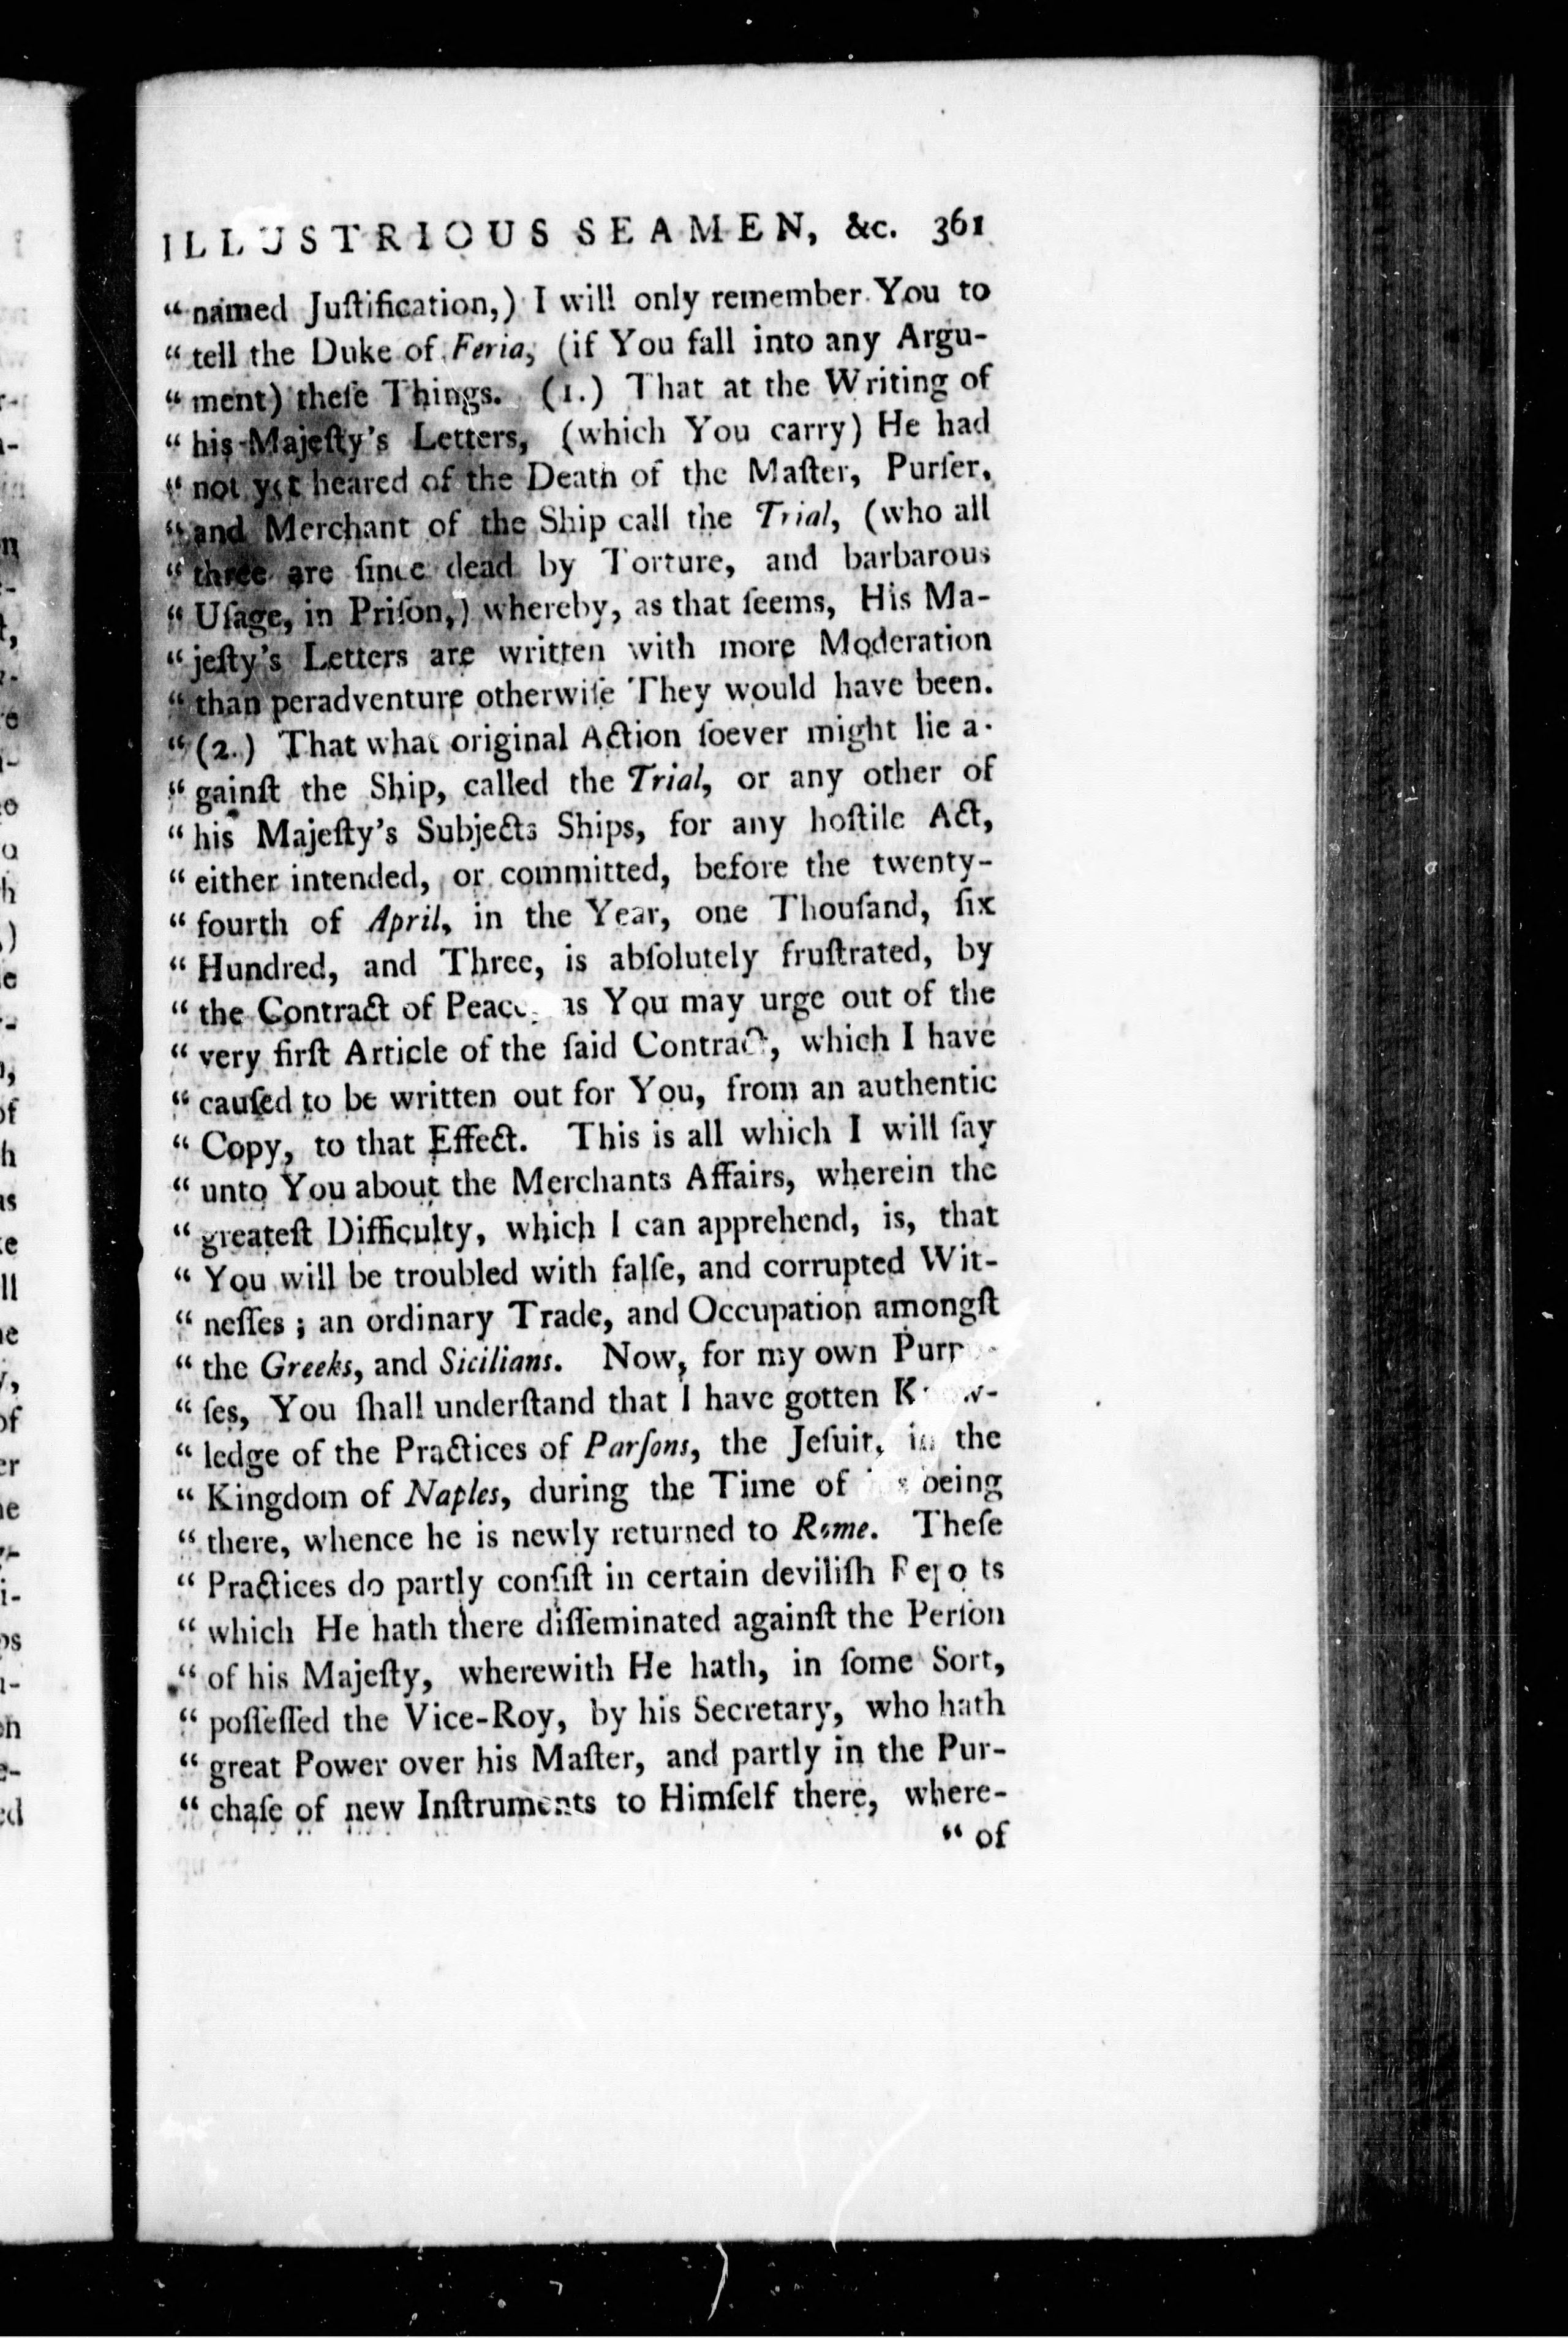 ILLUSTRIOUS SEAMEN, &c. 361
“ named Juſtification,) I will only remember You to
“ tell the Duke of Feria, (if You fall into any Argu-
“ ment) theſe Things. (1.) That at the Writing of
“ his Majeſty's Letters, (which You carry) He had
“ not yet heared of the Death of the Maſter, Purſer,
“ and Merchant of the Ship call the Trial, (who all
“ three are ſince dead by Torture, and barbarous
“ Uſage, in Priſon,) whereby, as that ſeems, His Ma-
“ jeſty's Letters are written with more Moderation
“ than peradventure otherwiſe They would have been.
“ (2.) That what original Action ſoever might lie a-
“ gainſt the Ship, called the Trial, or any other of
“ his Majeſty's Subjects Ships, for any hoſtile Act,
“ either intended, or committed, before the twenty-
“ fourth of April, in the Year, one Thouſand, ſix
“ Hundred, and Three, is abſolutely fruſtrated, by
“ the Contract of Peace as You may urge out of the
“ very firſt Article of the ſaid Contract, which I have
“ cauſed to be written out for You, from an authentic
“ Copy, to that Effect. This is all which I will ſay
“ unto You about the Merchants Affairs, wherein the
“ greateſt Difficulty, which I can apprehend, is, that
“ You will be troubled with falſe, and corrupted Wit-
“ neſſes ; an ordinary Trade, and Occupation amongſt
“ the Greeks, and Sicilians. Now, for my own Purpo-
“ ſes, You ſhall underſtand that I have gotten Know-
“ ledge of the Practices of Parſons, the Jeſuit, in the
“ Kingdom of Naples, during the Time of his being
“ there, whence he is newly returned to Rome. Theſe
“ Practices do partly conſiſt in certain deviliſh Reports
“ which He hath there diſſeminated againſt the Perſon
“ of his Majeſty, wherewith He hath, in ſome Sort,
“ poſſeſſed the Vice-Roy, by his Secretary, who hath
“ great Power over his Maſter, and partly in the Pur-
“ chaſe of new Inſtruments to Himſelf there, where-
“ of